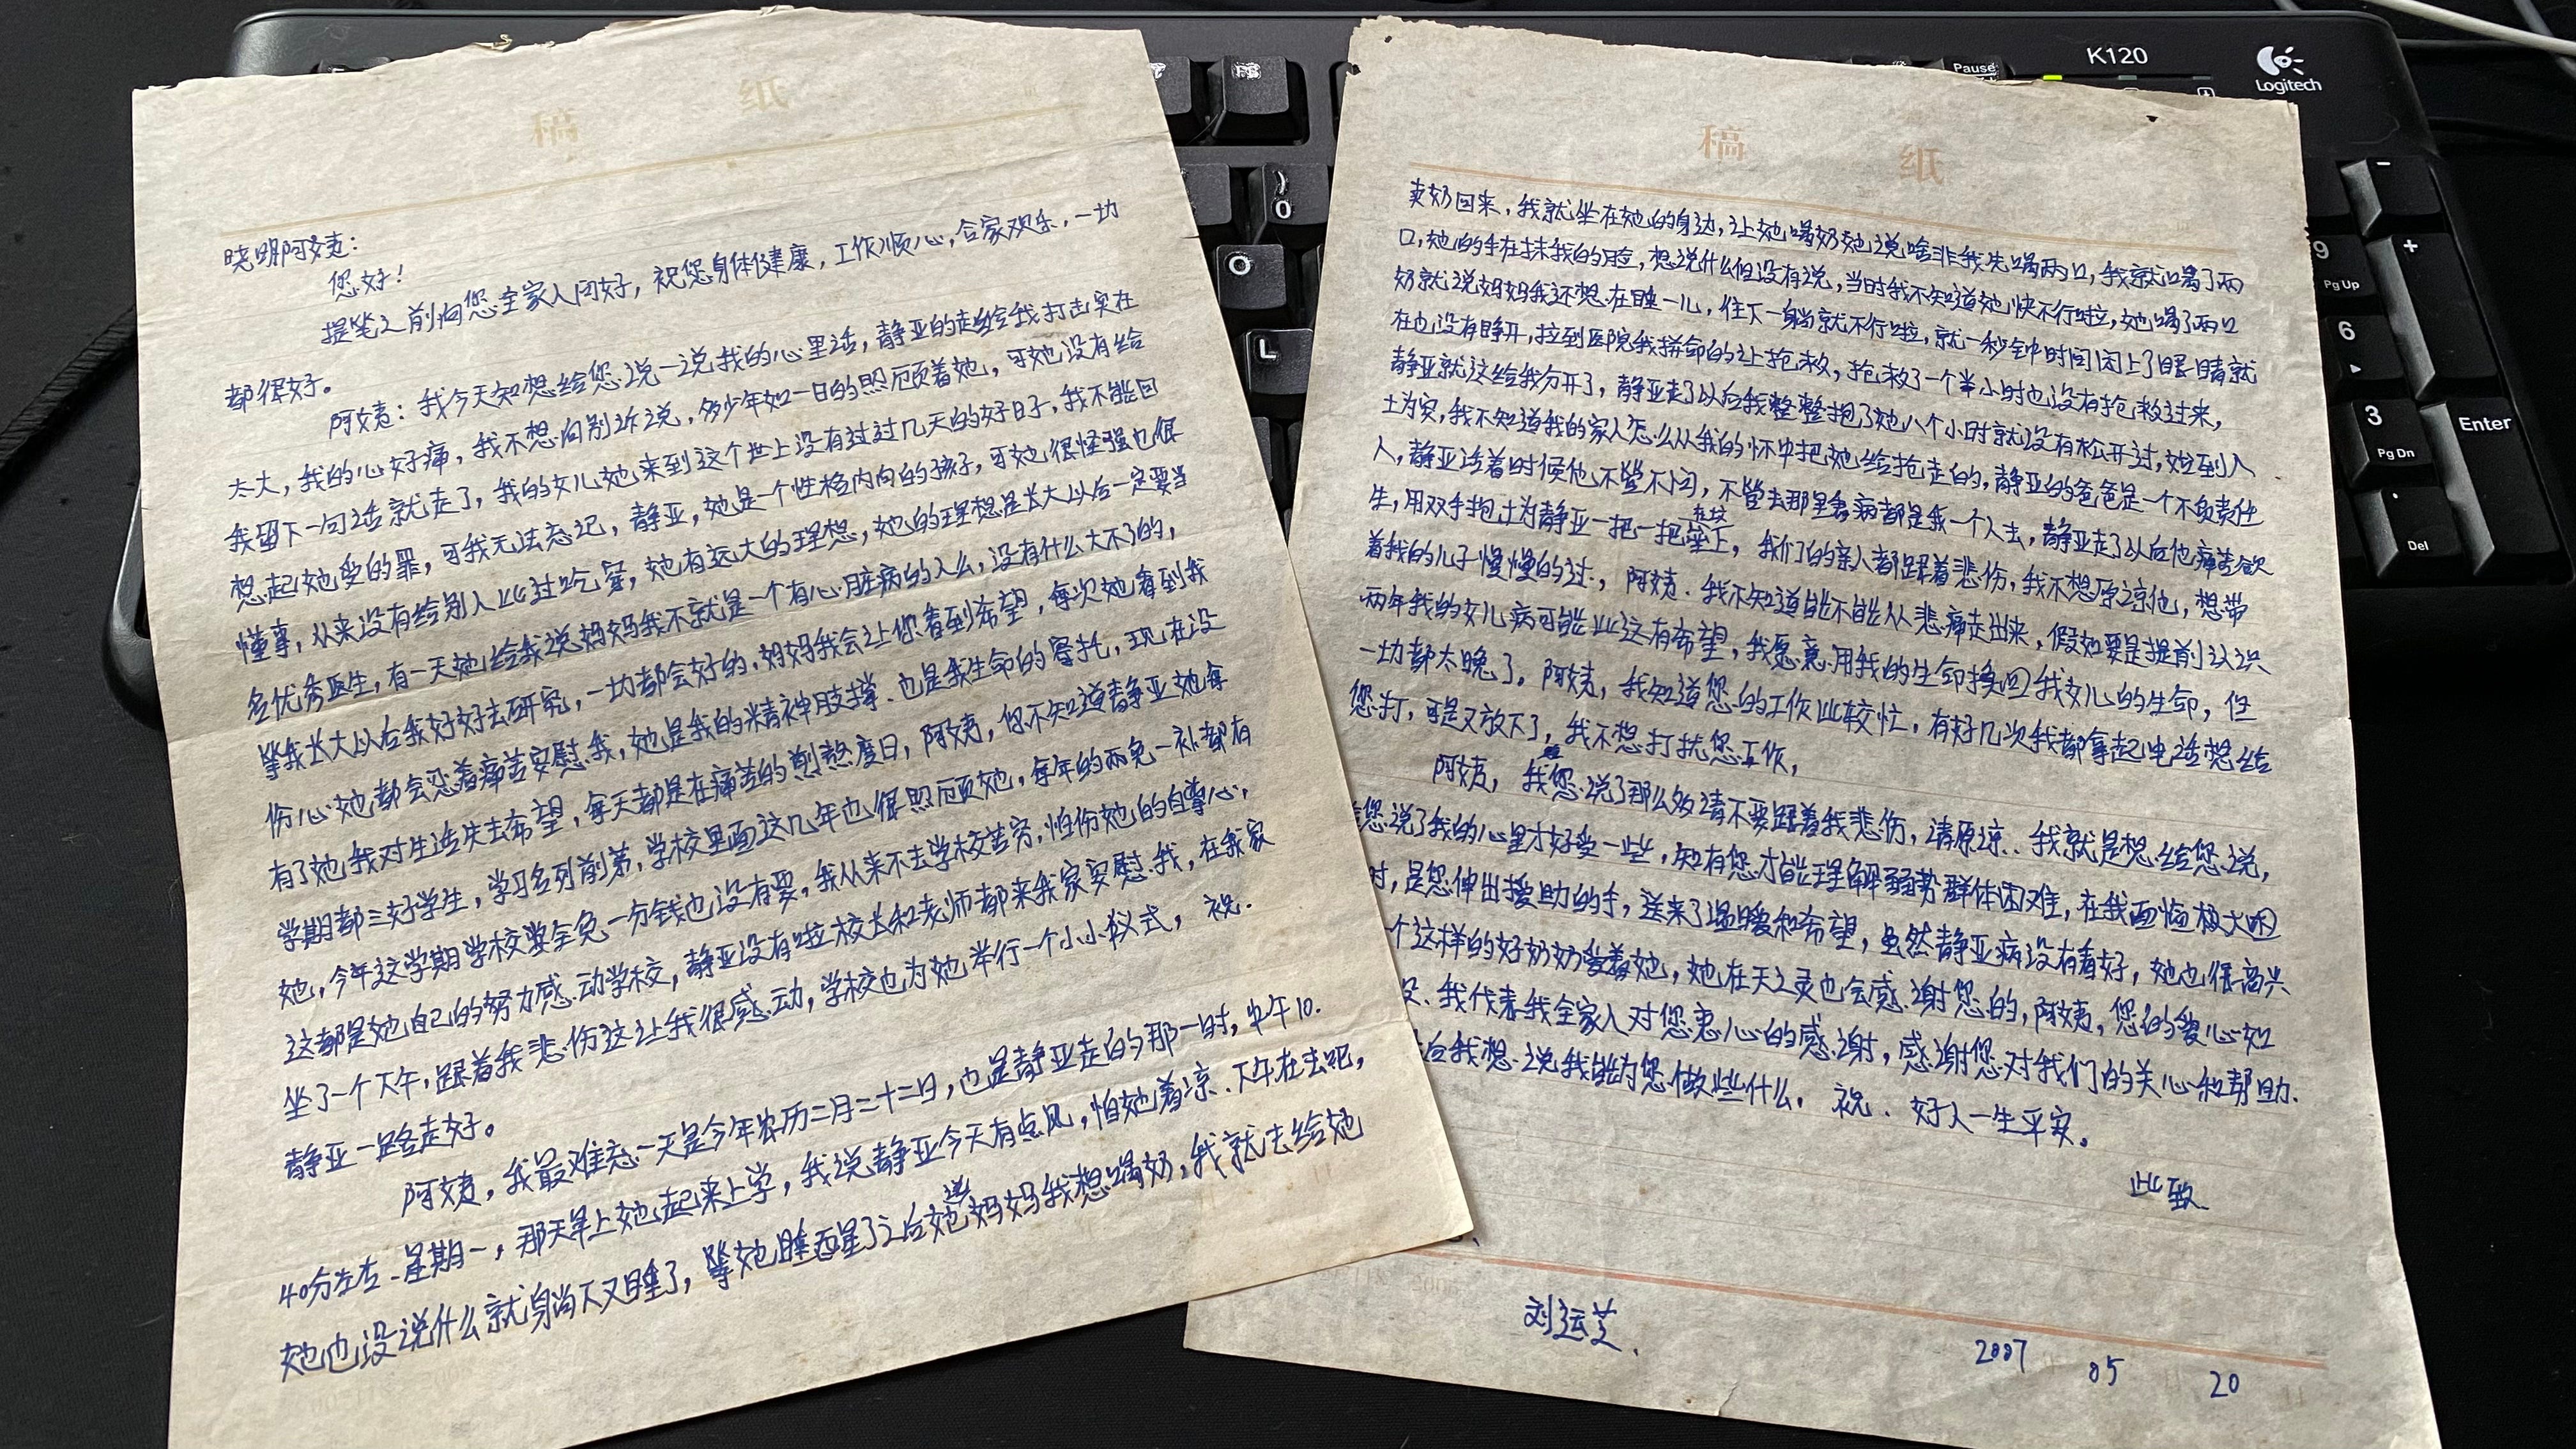 稿 纸
晓明阿姨：
您好！
提笔之前向您全家人问好，祝您身体健康，工作顺心，合家欢乐，一切
都很好。
阿姨：我今天知想给您说一说我的心里话，静亚的走给我打击实在
太大，我的心好痛，我不想向别诉说，多少年如一日的照顾着她，可她没有给
我留下一句话就走了，我的女儿她来到这个世上没有过过几天的好日子，我不能回
想起她受的罪，可我无法忘记，静亚，她是一个性格内向的孩子，可她很怪强也很
懂事，从来没有给别人比过吃穿，她有远大的理想，她的理想是长大以后一定要当
名优秀医生，有一天她给我说妈妈我不就是一个有心脏病的人么，没有什么大不了的，
等我长大以后我好好去研究，一切都会好的，妈妈我会让你看到希望，每次她看到我
伤心她都会忍着痛苦安慰我，她是我的精神肢撑．也是我生命的寄托，现在没
有了她我对生活失去希望，每天都是在痛苦的煎熬度日，阿姨，您不知道静亚她每
学期都三好学生，学习名列前第，学校里面这几年也很照顾她，每年的两免一补都有
她，今年这学期学校要全免一分钱也没有要，我从来不去学校苦穷，怕伤她的自尊心，
这都是她自己的努力感动学校，静亚没有啦校长和老师都来我家安慰我，在我家
坐了一个下午，跟着我悲伤这让我很感动，学校也为她举行一个小小仪式，祝．
静亚一路走好。
阿姨，我最难忘一天是今年农历二月二十二日，也是静亚走的那一时，中午10.
40分左右．星期一，那天早上她起来上学，我说静亚今天有点风，怕她着凉．下午在去吧，
她也没说什么就身尚下又睡了，等她睡西星了之后她说妈妈我想喝奶，我就去给她
稿 纸
卖奶回来，我就坐在她的身边，让她喝奶她说啥非我先喝两口，我就喝了两
口，她的手在抹我的脸，想说什么但没有说，当时我不知道她快不行啦，她喝了两口
奶就说妈妈我还想在睡一儿，住下一躺就不行啦，就一秒钟时间闭上了眼睛就
在也没有睁开，拉到医院我拼命的让抢救，抢救了一个半小时也没有抢救过来，
静亚就这给我分开了，静亚走了以后我整整抱了她八个小时就没有松开过，她到入
土为安，我不知道我的家人怎么从我的怀中把她给抢走的，静亚的爸爸是一个不负责任
人，静亚活着时候他不管不问，不管去那里看病都是我一个人去，静亚走了以后他痛苦欲
生，用双手抱土为静亚一把一把垒上，我们的亲人都跟着悲伤，我不想原凉他，想带
着我的儿子慢慢的过．，阿姨．我不知道能不能从悲痛走出来，假如要是提前认识
两年我的女儿病可能比这有希望，我愿意用我的生命换回我女儿的生命，但
一切都太晚了。阿姨，我知道您的工作比较忙，有好几次我都拿起电话想给
您打，可是又放下了，我不想打扰您工作，
阿姨，我您说了那么多请不要跟着我悲伤，请原凉．．我就是想给您说，
您说了我的心里才好受一些，知有您才能理解弱势群体困难，在我面临极大困
时，是您伸出援助的手，送来了温暖和希望，虽然静亚病没有看好，她也很高兴
个这样的好奶奶爱着她，她在天之灵也会感谢您的，阿姨，您的爱心如
．我代表我全家人对您衷心的感谢，感谢您对我们的关心和帮助．
后我想说我能为您做些什么．祝．好人一生平安。
此致
刘运芝．
2007 05 20
K120
Logitech
Pause
O
0
L
9
Pg Up
6
3
Pg Dn
Enter
Del